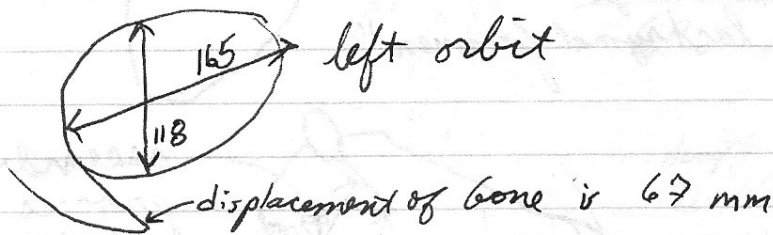 165 left orbit
118
displacement of bone is 67 mm